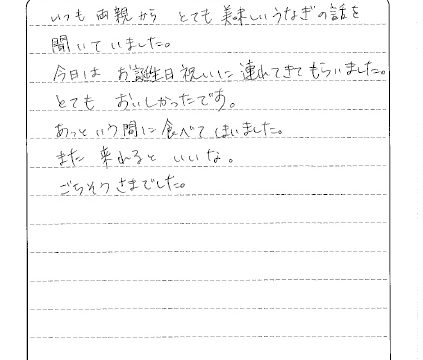 いつも両親からとても美味しいうなぎの話を
聞いていました。
今日はお誕生日祝いに連れてきてもらいました。
とてもおいしかったです。
あっという間に食べてしまいました。
また来れるといいな。
ごちそうさまでした。